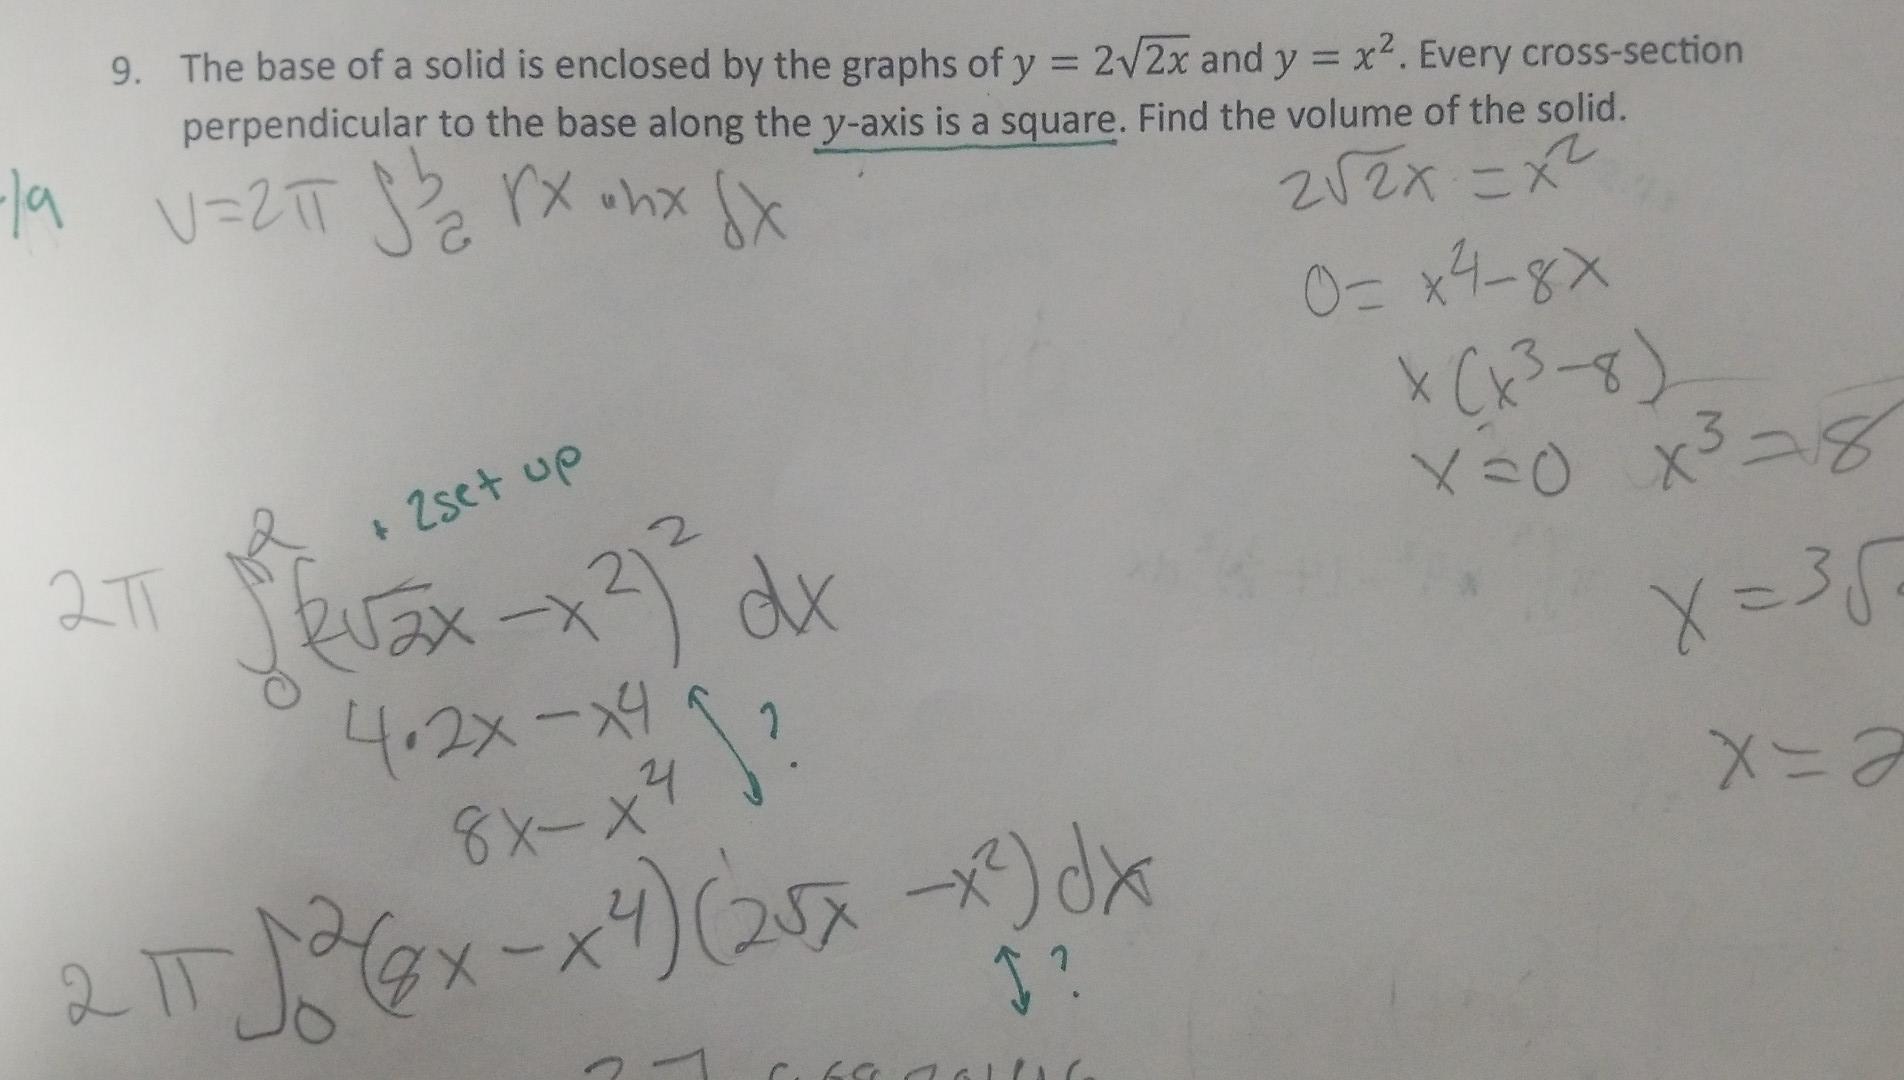 9. The base of a solid is enclosed by the graphs of y = 2√2x and y = x². Every cross-section
perpendicular to the base along the y-axis is a square. Find the volume of the solid.
-/9
V=2π ∫ₐᵇ rx · hx dx
2√2x = x²
0= x⁴-8x
x(x³-8)
x=0 x³=8
x=³√
x=2
+2 set up
2π ∫₀² (2√2x -x²)² dx
4·2x-x⁴ ?
8x-x⁴
2π ∫₀² (8x-x⁴)(2√x -x²)dx
?